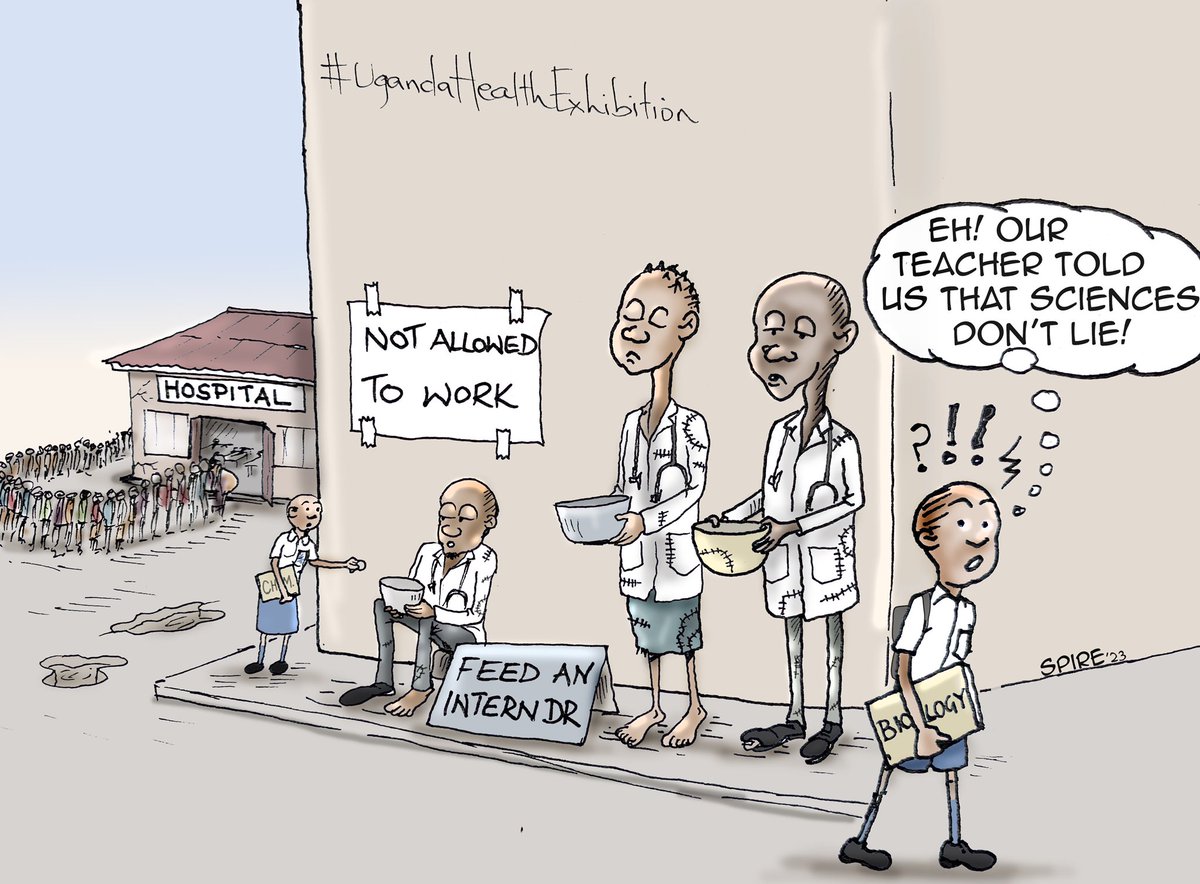 #UgandaHealthExhibition
EH! OUR
TEACHER TOLD
US THAT SCIENCES
DON'T LIE!
NOT ALLOWED
TO WORK
HOSPITAL
?!!
CHEM
FEED AN
INTERN DR
BIOLOGY
SPIRE'23